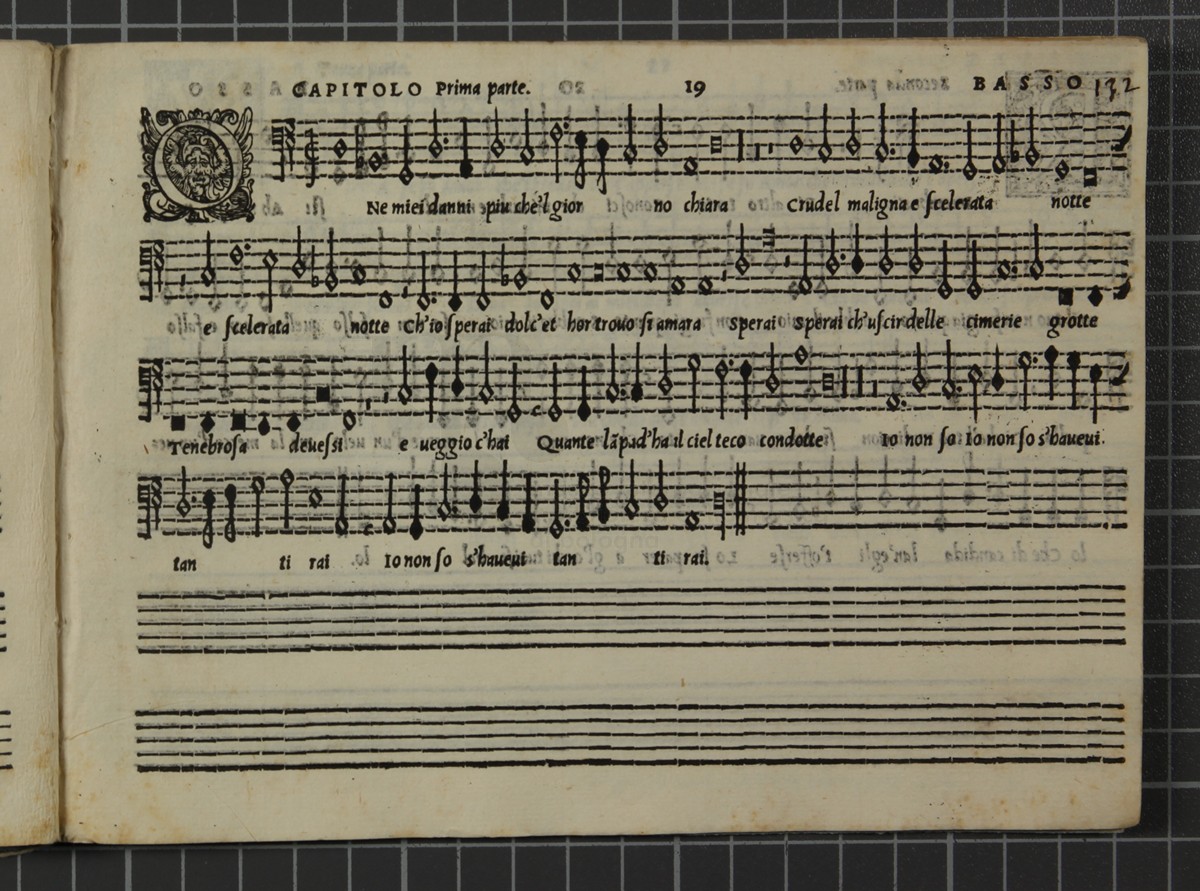 CAPITOLO Prima parte. 19 BASSO 132
O Ne miei danni piu che'l gior no chiara Crudel maligna e scelerata notte
e scelerata notte Ch'io sperai dolc'et hor trouo si amara sperai sperai ch'uscir delle cimerie grotte
Tenebrosa deuessi e ueggio c'hai Quante lãpad'ha il ciel teco condotte Io non so Io non so s'haueui.
tan ti rai Io non so s'haueui tan ti rai.